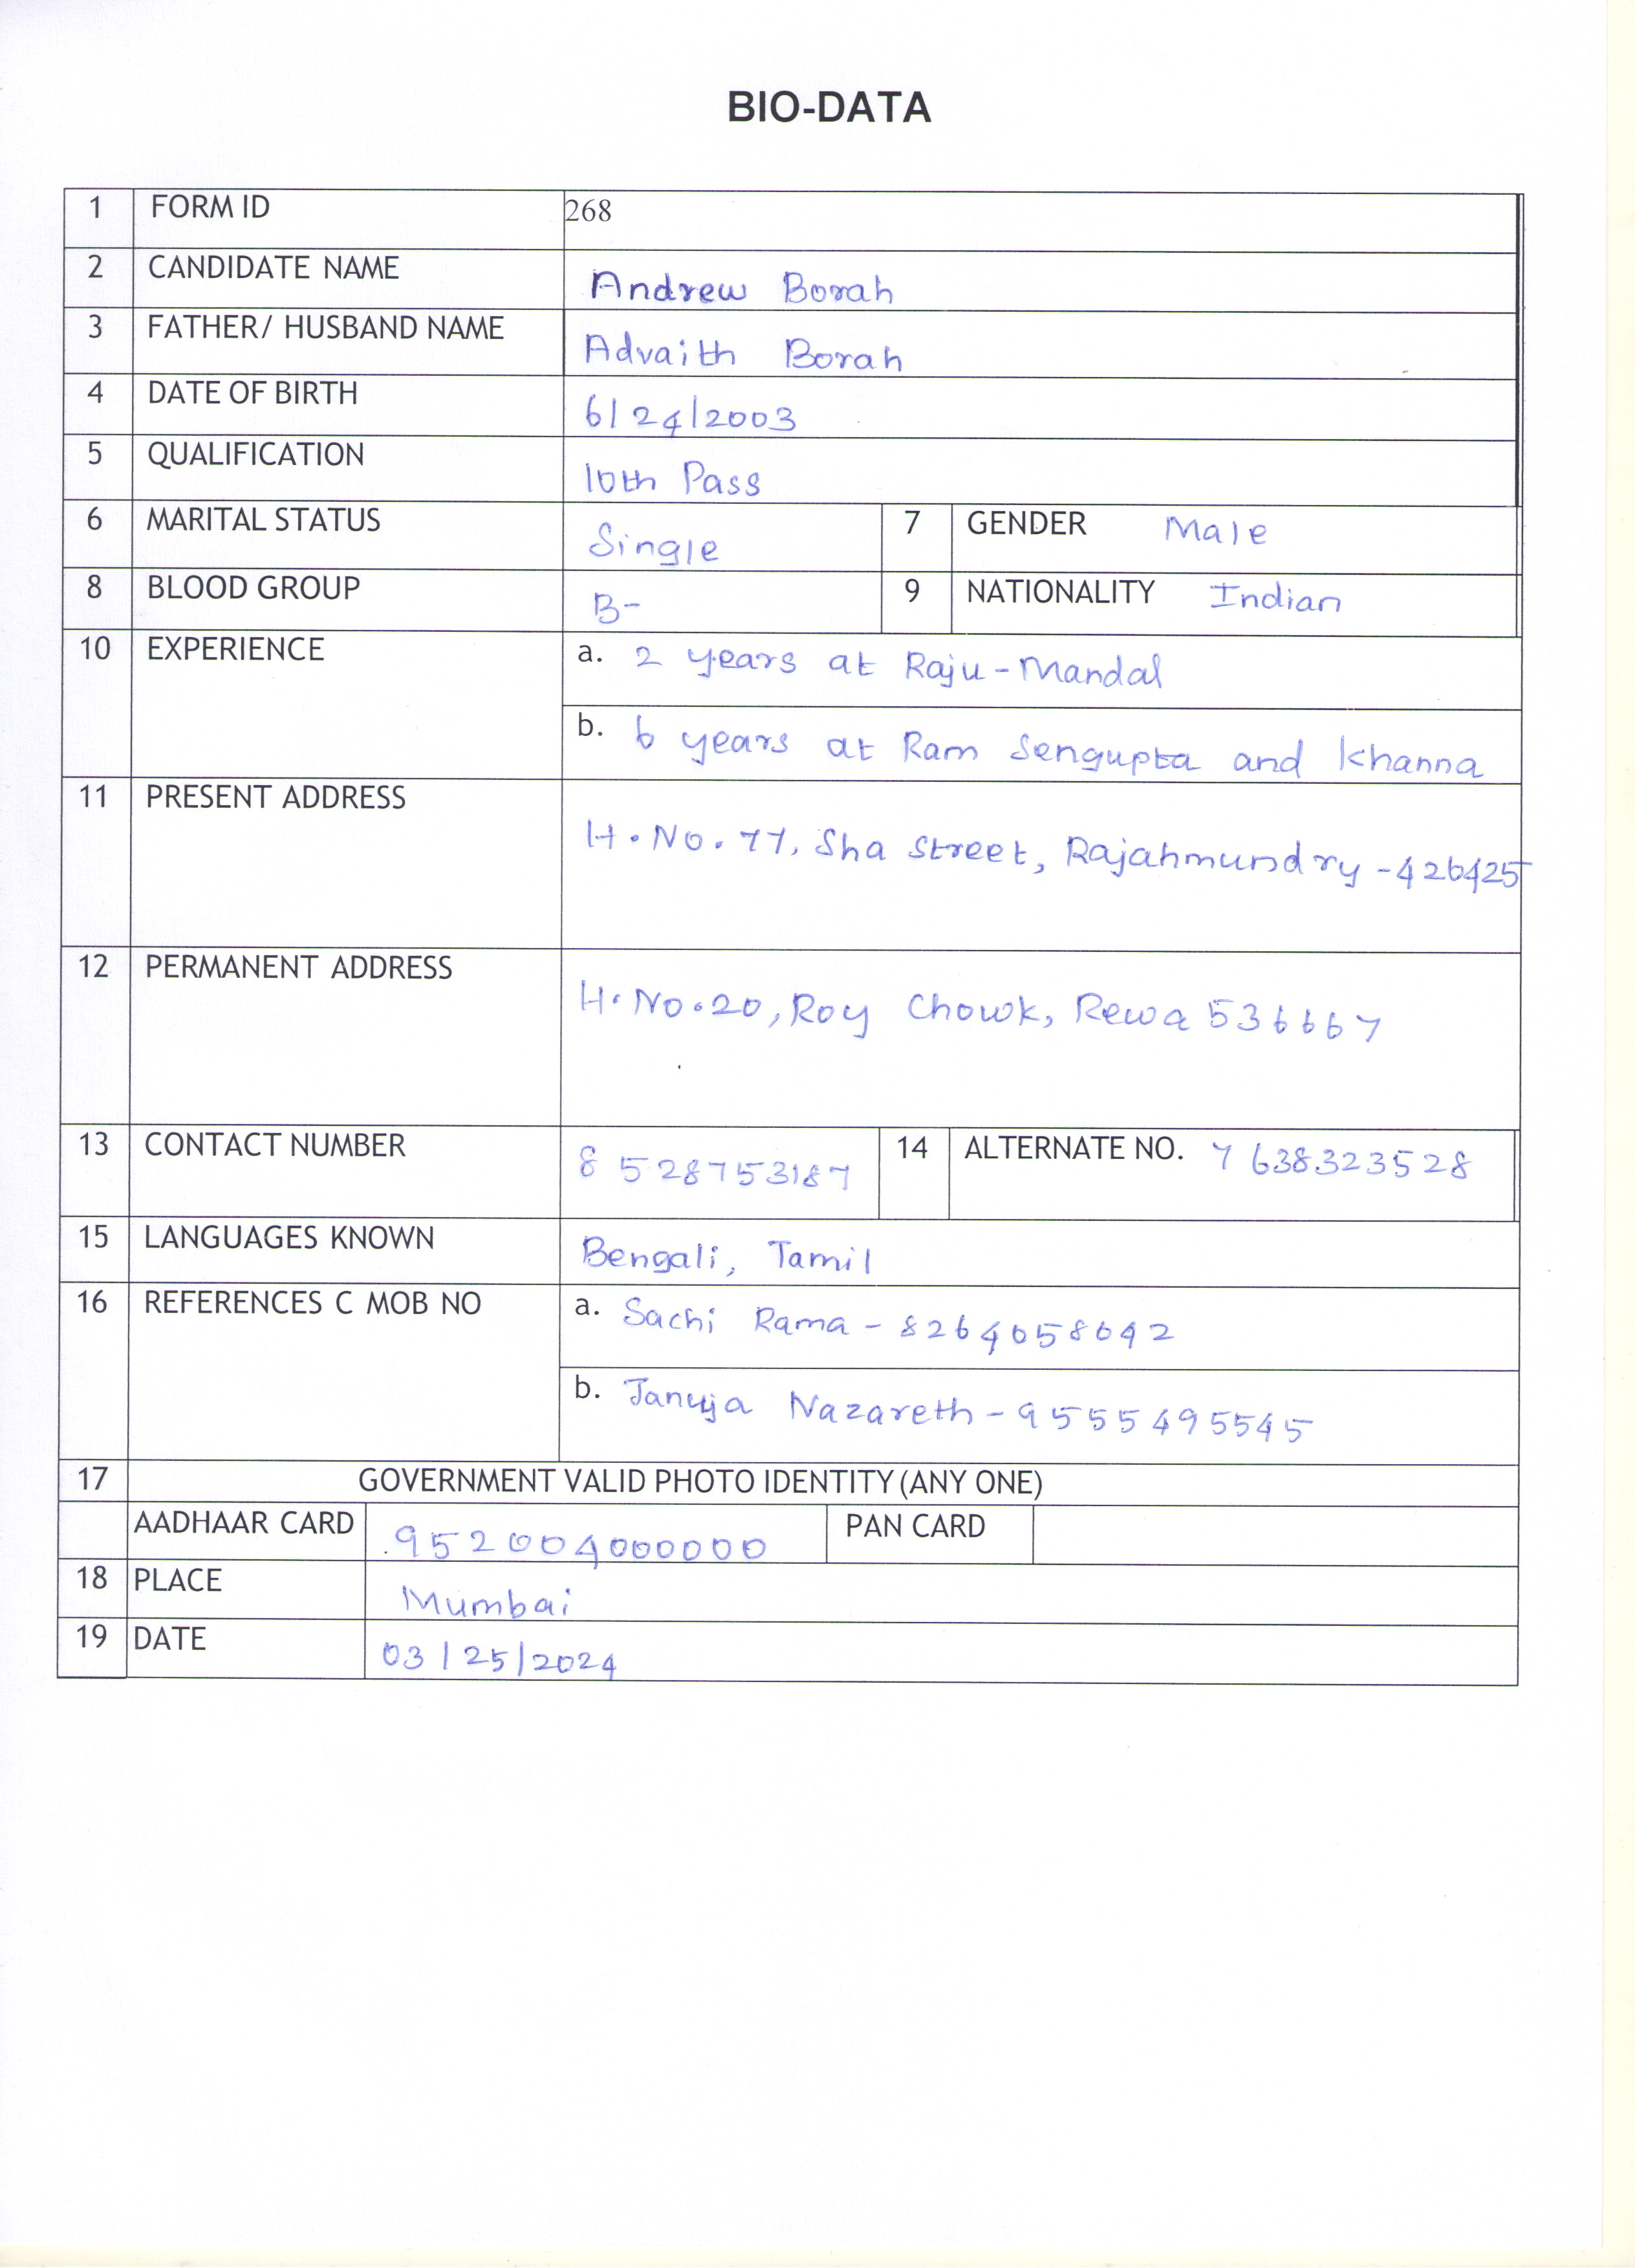 BIO-DATA
1 FORM ID 268
2 CANDIDATE NAME Andrew Borah
3 FATHER/ HUSBAND NAME Advaith Borah
4 DATE OF BIRTH 6/24/2003
5 QUALIFICATION 10th Pass
6 MARITAL STATUS Single 7 GENDER Male
8 BLOOD GROUP B- 9 NATIONALITY Indian
10 EXPERIENCE a. 2 years at Raju-Mandal
b. 6 years at Ram Sengupta and Khanna
11 PRESENT ADDRESS H.No.77, Sha Street, Rajahmundry -426425
12 PERMANENT ADDRESS H.No.20, Roy Chowk, Rewa 536667
13 CONTACT NUMBER 8528753187 14 ALTERNATE NO. 7638323528
15 LANGUAGES KNOWN Bengali, Tamil
16 REFERENCES C MOB NO a. Sachi Rama - 8264058642
b. Januja Nazareth - 9555495545
17 GOVERNMENT VALID PHOTO IDENTITY (ANY ONE)
AADHAAR CARD 952004000000 PAN CARD
18 PLACE Mumbai
19 DATE 03/25/2024